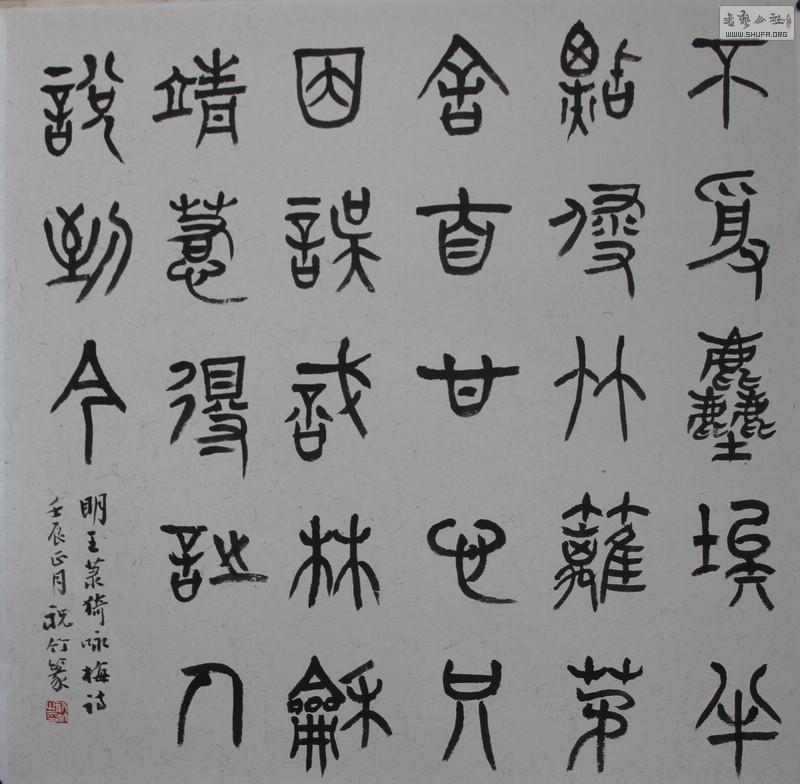 不受塵埃半
點侵竹籬茅
舍自甘心只
因誤識林龢
靖惹得詩人
說到今
明王菉猗咏梅詩
壬辰正月祝竹篆
書藝公社
WWW.SHUFA.ORG